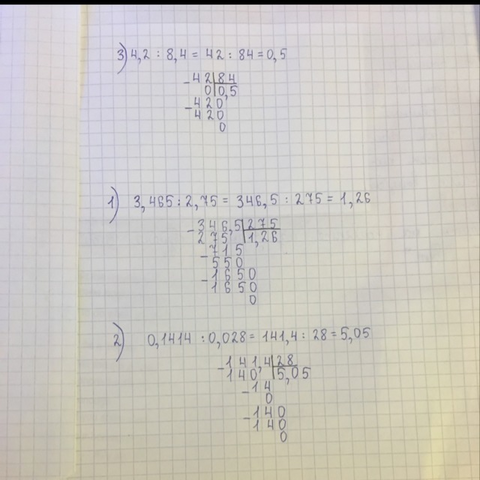 3) 4,2 : 8,4 = 42 : 84 = 0,5
- 42 | 84
0 | 0,5
- 420
420
0
1) 3,465 : 2,75 = 346,5 : 275 = 1,26
- 346,5 | 275
275 | 1,26
- 715
550
- 1650
1650
0
2) 0,1414 : 0,028 = 141,4 : 28 = 5,05
- 141,4 | 28
140, | 5,05
- 14
0
- 140
140
0